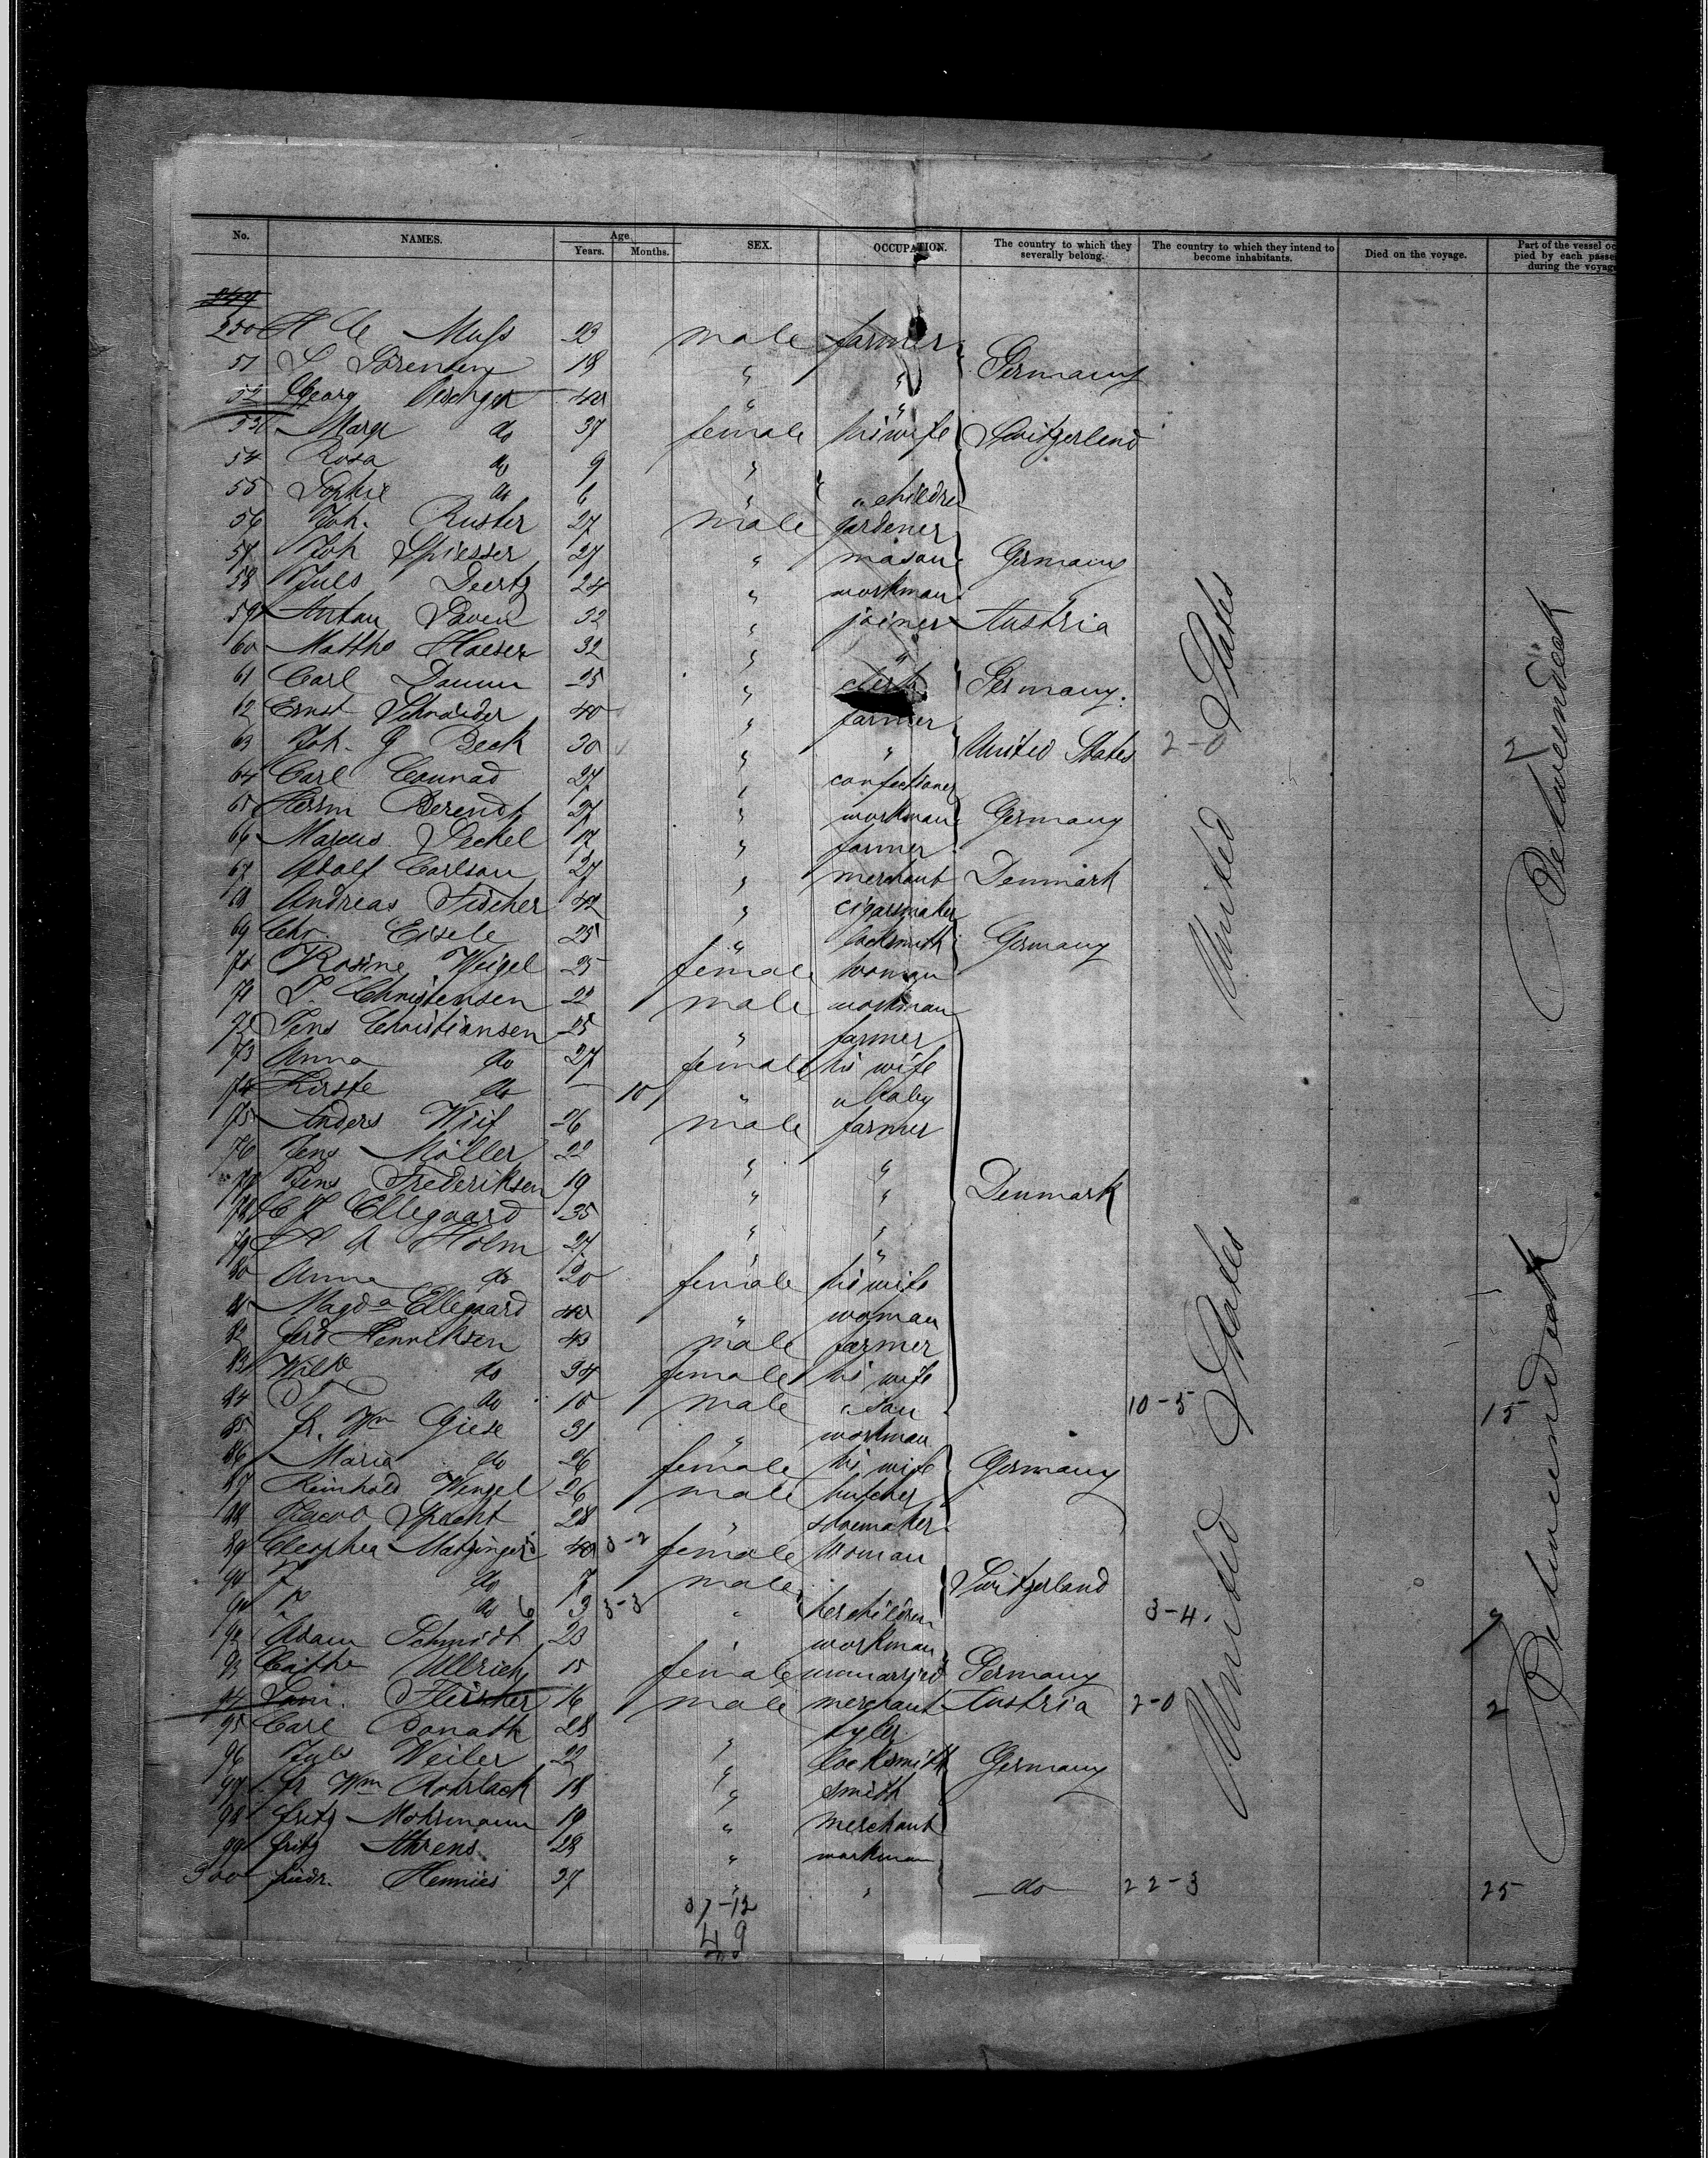 No. NAMES. Age Years. Months. SEX. OCCUPATION. The country to which they severally belong. The country to which they intend to become inhabitants. Died on the voyage. Part of the vessel oc pied by each passe during the voyag
249
250 H Muss 23 male farmer
51 S Sörensen 18 " " Germany
52 Georg 40 " "
53 Margr do 37 female his wife Switzerland
54 Rosa do 9 "
55 Sophie do 6 " " children
56 Joh. Ruster 27 male gardener
57 Joh Spiesser 27 " mason Germany
58 Juls Deertz 24 " workman
59 Anton 32 " joiner Austria
60 Matths Haeser 32 " "
61 Carl Damm 25 " clerk Germany.
62 Ernst Schneider 40 " farmer
63 Joh. G Beck 30 " " United States 2-0 2
64 Carl Conrad 27 " confectioner
65 Herm Berendt 27 " workman Germany
66 Marcus Peckel 17 " farmer
67 Adolf Carlson 27 " merchant Denmark
68 Andreas Fischer 42 " cigarsmaker
69 Chr. Eisele 25 " locksmith Germany
70 Rosine Weigel 25 female woman
71 P. Christensen 22 male workman
72 Jens Christiansen 25 " farmer
73 Anna do 27 female his wife
74 Kirste do — 10 " " baby
75 Anders Wiif 26 male farmer
76 Jens Möller 22 " "
77 Jens Frederiksen 19 " " Denmark
78 C J Ellegaard 35 " "
79 Holm 27 " "
80 Anna do 20 female his wife
81 Magda Ellegaard 40 " woman
82 Gerd Henriksen 43 male farmer
83 Wilhe do 34 female his wife
84 do 10 male " son 10-5 15
85 Fr. Wm Giese 31 " workman
86 Maria do 26 female his wife Germany
87 Reinhold Wenzel 26 male butcher
88 Jacob Specht 28 " shoemaker
89 Cleopha Matzinger 40 3-2 female woman
90 F do 7 male Switzerland
91 do 6 3 3-3 " her children 3-4. 7
92 Adam Schmidt 23 " workman
93 Cathe Ullrich 15 female unmarried Germany
94 Fleischer 16 male merchant Austria 2-0 2
95 Carl Donath 28 " tyler
96 Juls Weiler 22 " locksmith Germany
97 Fr Wm Rohrlack 18 " smith
98 Fritz Mohrmann 19 " merchant
99 Fritz Ahrens 28 " workman
300 Friedr. Hennies 37 " " do 22-3 25
37-12
49
United States
United States
Betweendeck
Betweendeck